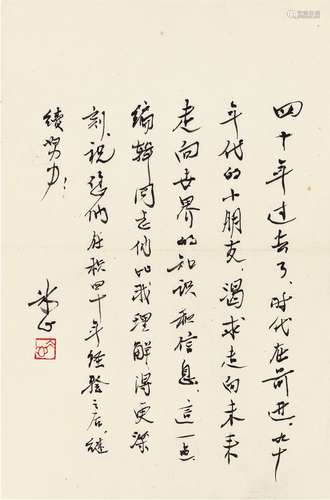 四十年过去了,时代在前进,九十
年代的小朋友,渴求走向未来
走向世界的知识和信息,这一点,
编辑同志们比我理解得更深
刻,祝你们在积四十年经验之后,继
续努力!